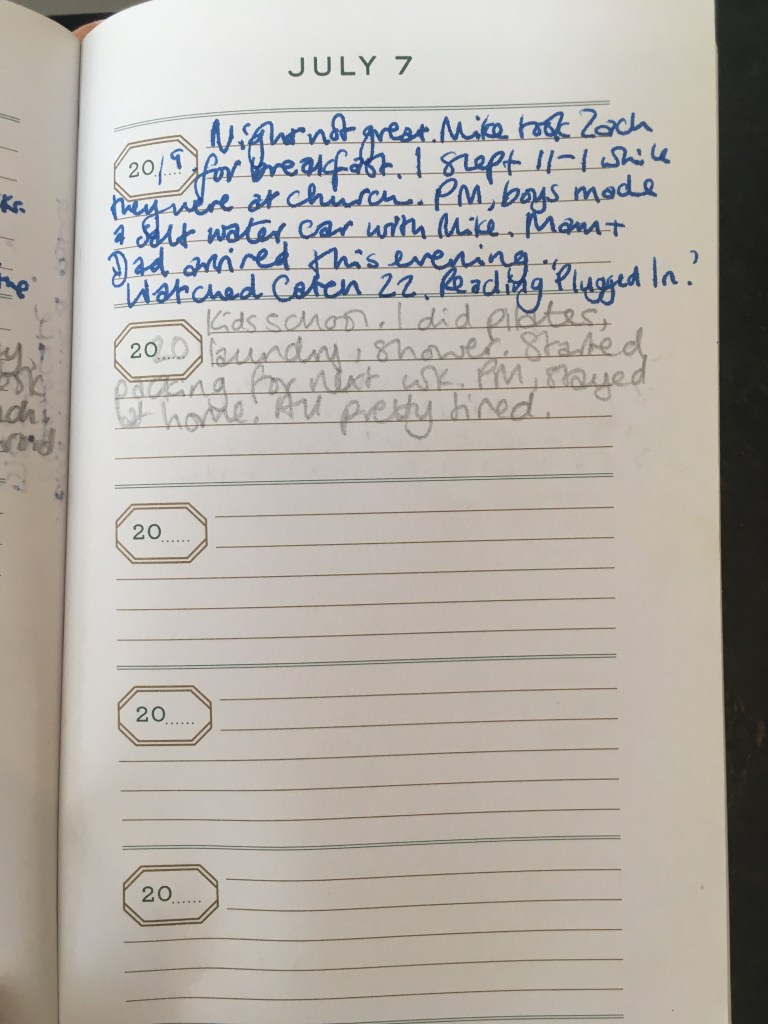 JULY 7
Night not great. Mike took Zach
2019 for breakfast. I slept 11-1 while
they were at church. PM, boys made
a salt water car with Mike. Mam +
Dad arrived this evening.
Watched Catch 22. Reading 'Plugged In.'
Kids school. I did pilates,
2020 laundry, shower. Started
packing for next wk. PM, stayed
at home. All pretty tired.
20......
20......
20......